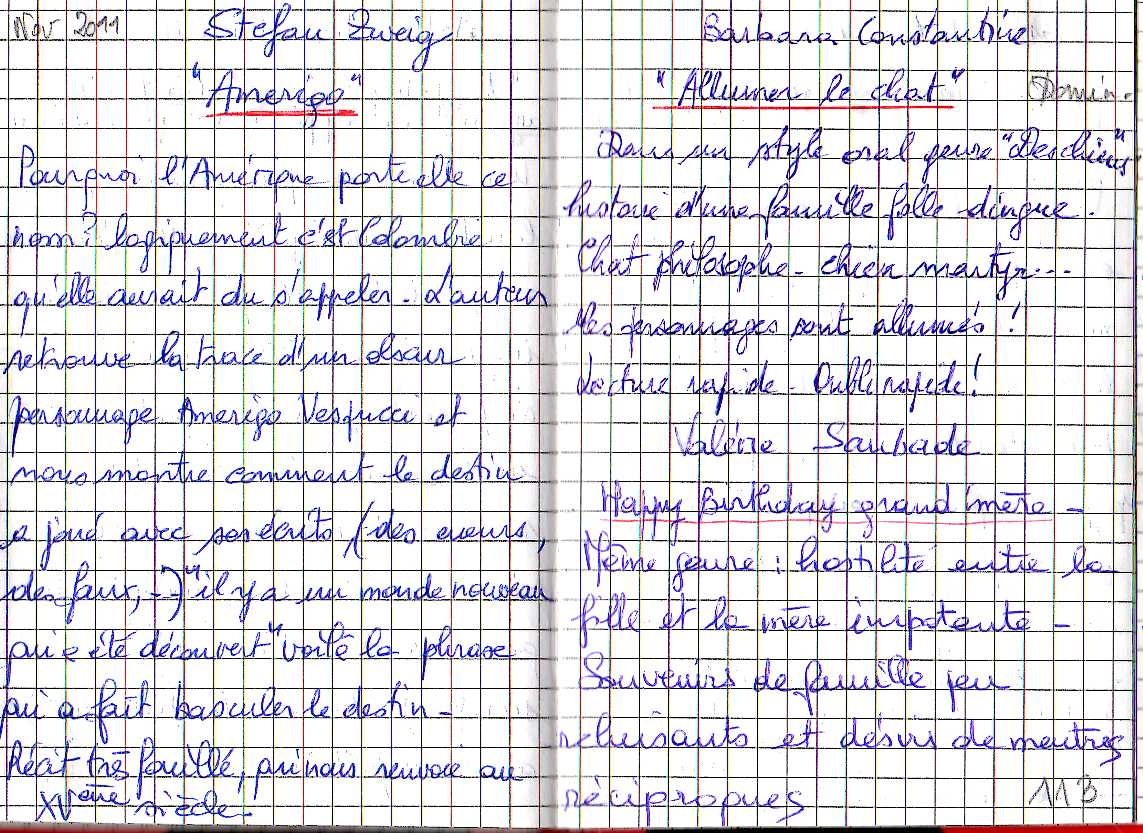 Nov 2011
Stefan Zweig
"Amerigo"
Pourquoi l'Amérique porte elle ce
nom? logiquement c'est Colombie
qu'elle aurait du s'appeler - L'auteur
retrouve la trace d'un obscur
personnage Amerigo Vespucci et
nous montre comment le destin
a joué avec ses écrits (des erreurs,
des faux, --) "il y a un monde nouveau
qui a été découvert" voilà la phrase
qui a fait basculer le destin -
Récit très fouillé, qui nous renvoie au
XVème siècle.
Barbara Constantine
"Allumer le chat" Domin.
Dans un style oral genre "Deschiens"
histoire d'une famille folle dingue.
Chat philosophe - chien martyr...
Les personnages sont allumés!
Lecture rapide - Oubli rapide!
Valérie Saubade
Happy Birthday grand'mère -
Même genre : hostilité entre la
fille et la mère impotente -
Souvenirs de famille peu
reluisants et désirs de meutres
réciproques
113